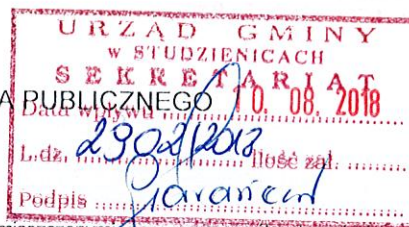 URZĄD GMINY
W STUDZIENICACH
SEKRETARIAT
A PUBLICZNEGO
Data wpływu 10. 08. 2018
L.dz. 2902/2018 Ilość zał.
Podpis